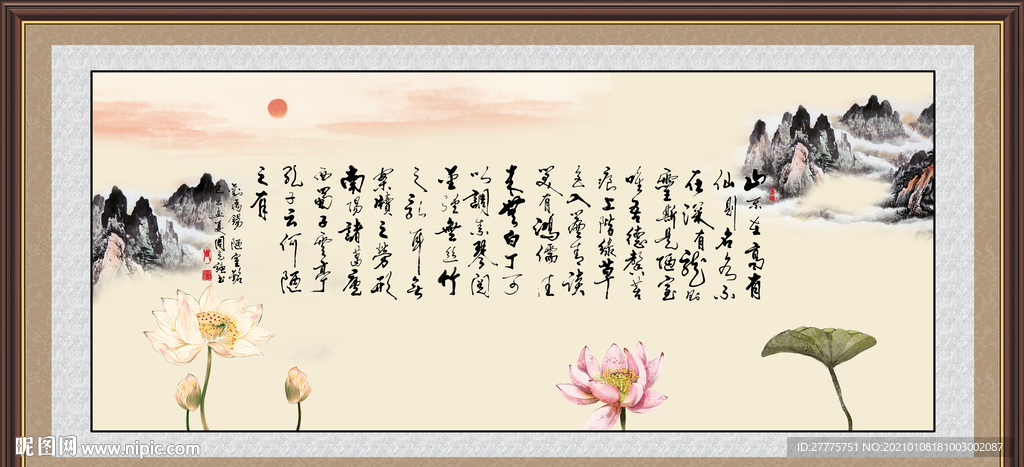 山不在高有
仙則名水不
在深有龍則
靈斯是陋室
唯吾德馨苔
痕上階綠草
色入簾青談
笑有鴻儒往
來無白丁可
以調素琴閱
金經無絲竹
之亂耳無
案牘之勞形
南陽諸葛廬
西蜀子雲亭
孔子云何陋
之有
劉禹錫 陋室銘
昵图网 www.nipic.com
ID:27775751 NO:20210108181003002087